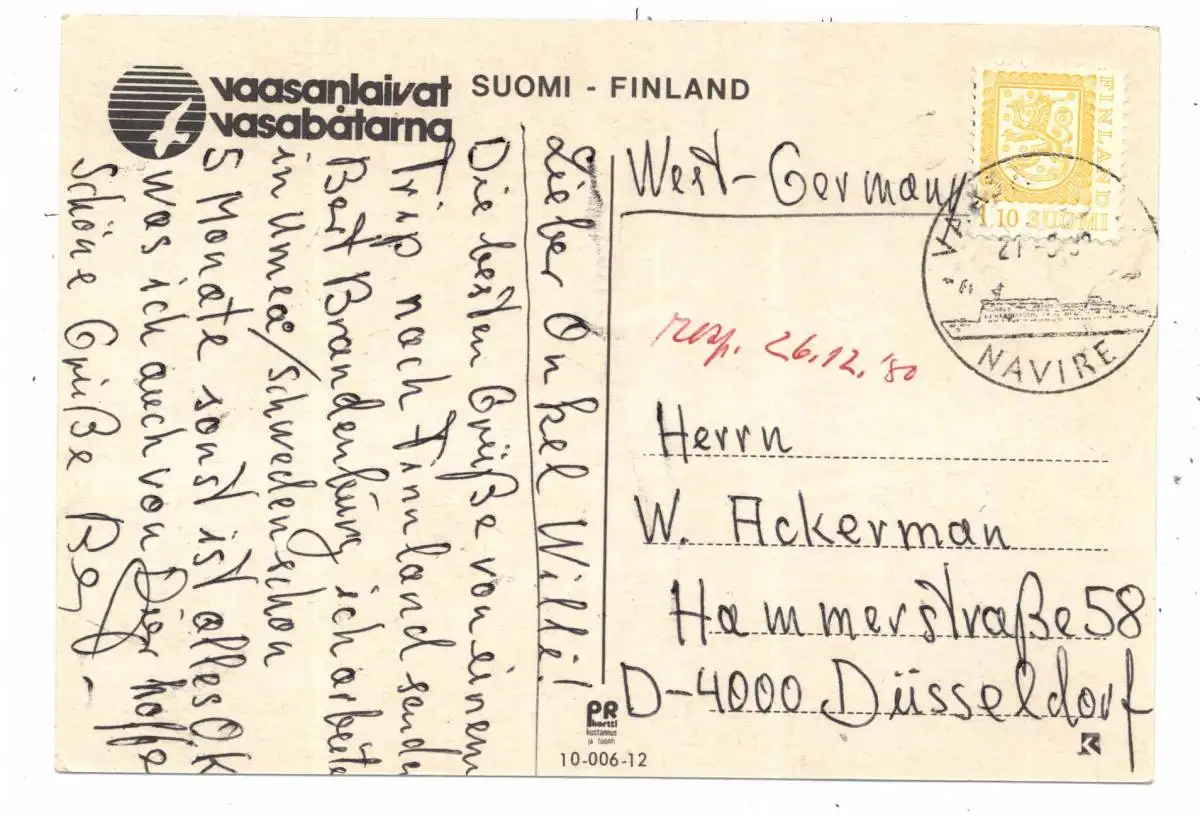 vaasanlaivat
vasabåtarna
SUOMI - FINLAND
Lieber Onkel Willi!
Die besten Grüße von einem
Trip nach Finnland sendet
Bert Brandenburg ich arbeite
in Umeå/Schweden schon
5 Monate sonst ist alles OK
was ich auch von Dier hoffe
Schöne Grüße
West-Germany
FINLAND
1,10 SUOMI
NAVIRE
resp. 26.12.'80
Herrn
W. Ackerman
Hammerstraße 58
D-4000 Düsseldorf
PR
kortti
kustannus
ja tuonti
10-006-12